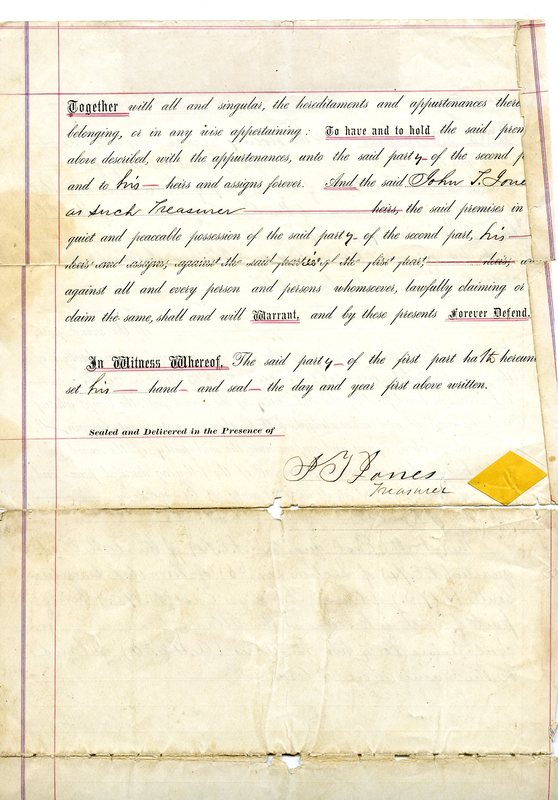 Together with all and singular, the hereditaments and appurtenances there
belonging, or in any wise appertaining: To have and to hold the said prem
above described, with the appurtenances, unto the said party of the second p
and to his heirs and assigns forever. And the said John T. Jone
as such Treasurer heirs, the said premises in
quiet and peaceable possession of the said party of the second part, his
heirs and assigns, against the said parties of the first part, heirs,
against all and every person and persons whomsoever, lawfully claiming or
claim the same, shall and will Warrant, and by these presents Forever Defend.
In Witness Whereof, The said party of the first part hath hereun
set his hand and seal the day and year first above written.
Sealed and Delivered in the Presence of
J T Jones
Treasurer